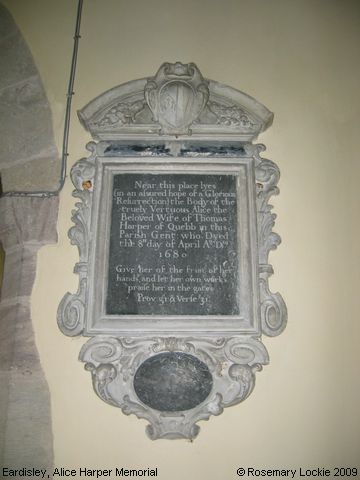 Near this place lyes
(in an assured hope of a Glorious
Resurrection) the Body of the
truely Vertuous Alice the
Beloved Wife of Thomas
Harper of Quebb in this
Parish Gent: who Dyed
the 8th day of April Ao: Dni
1680
Give her of the fruit of her
hands and let her own works
praise her in the gates
Prov: 31 & Verse 31
Eardisley, Alice Harper Memorial
© Rosemary Lockie 2009